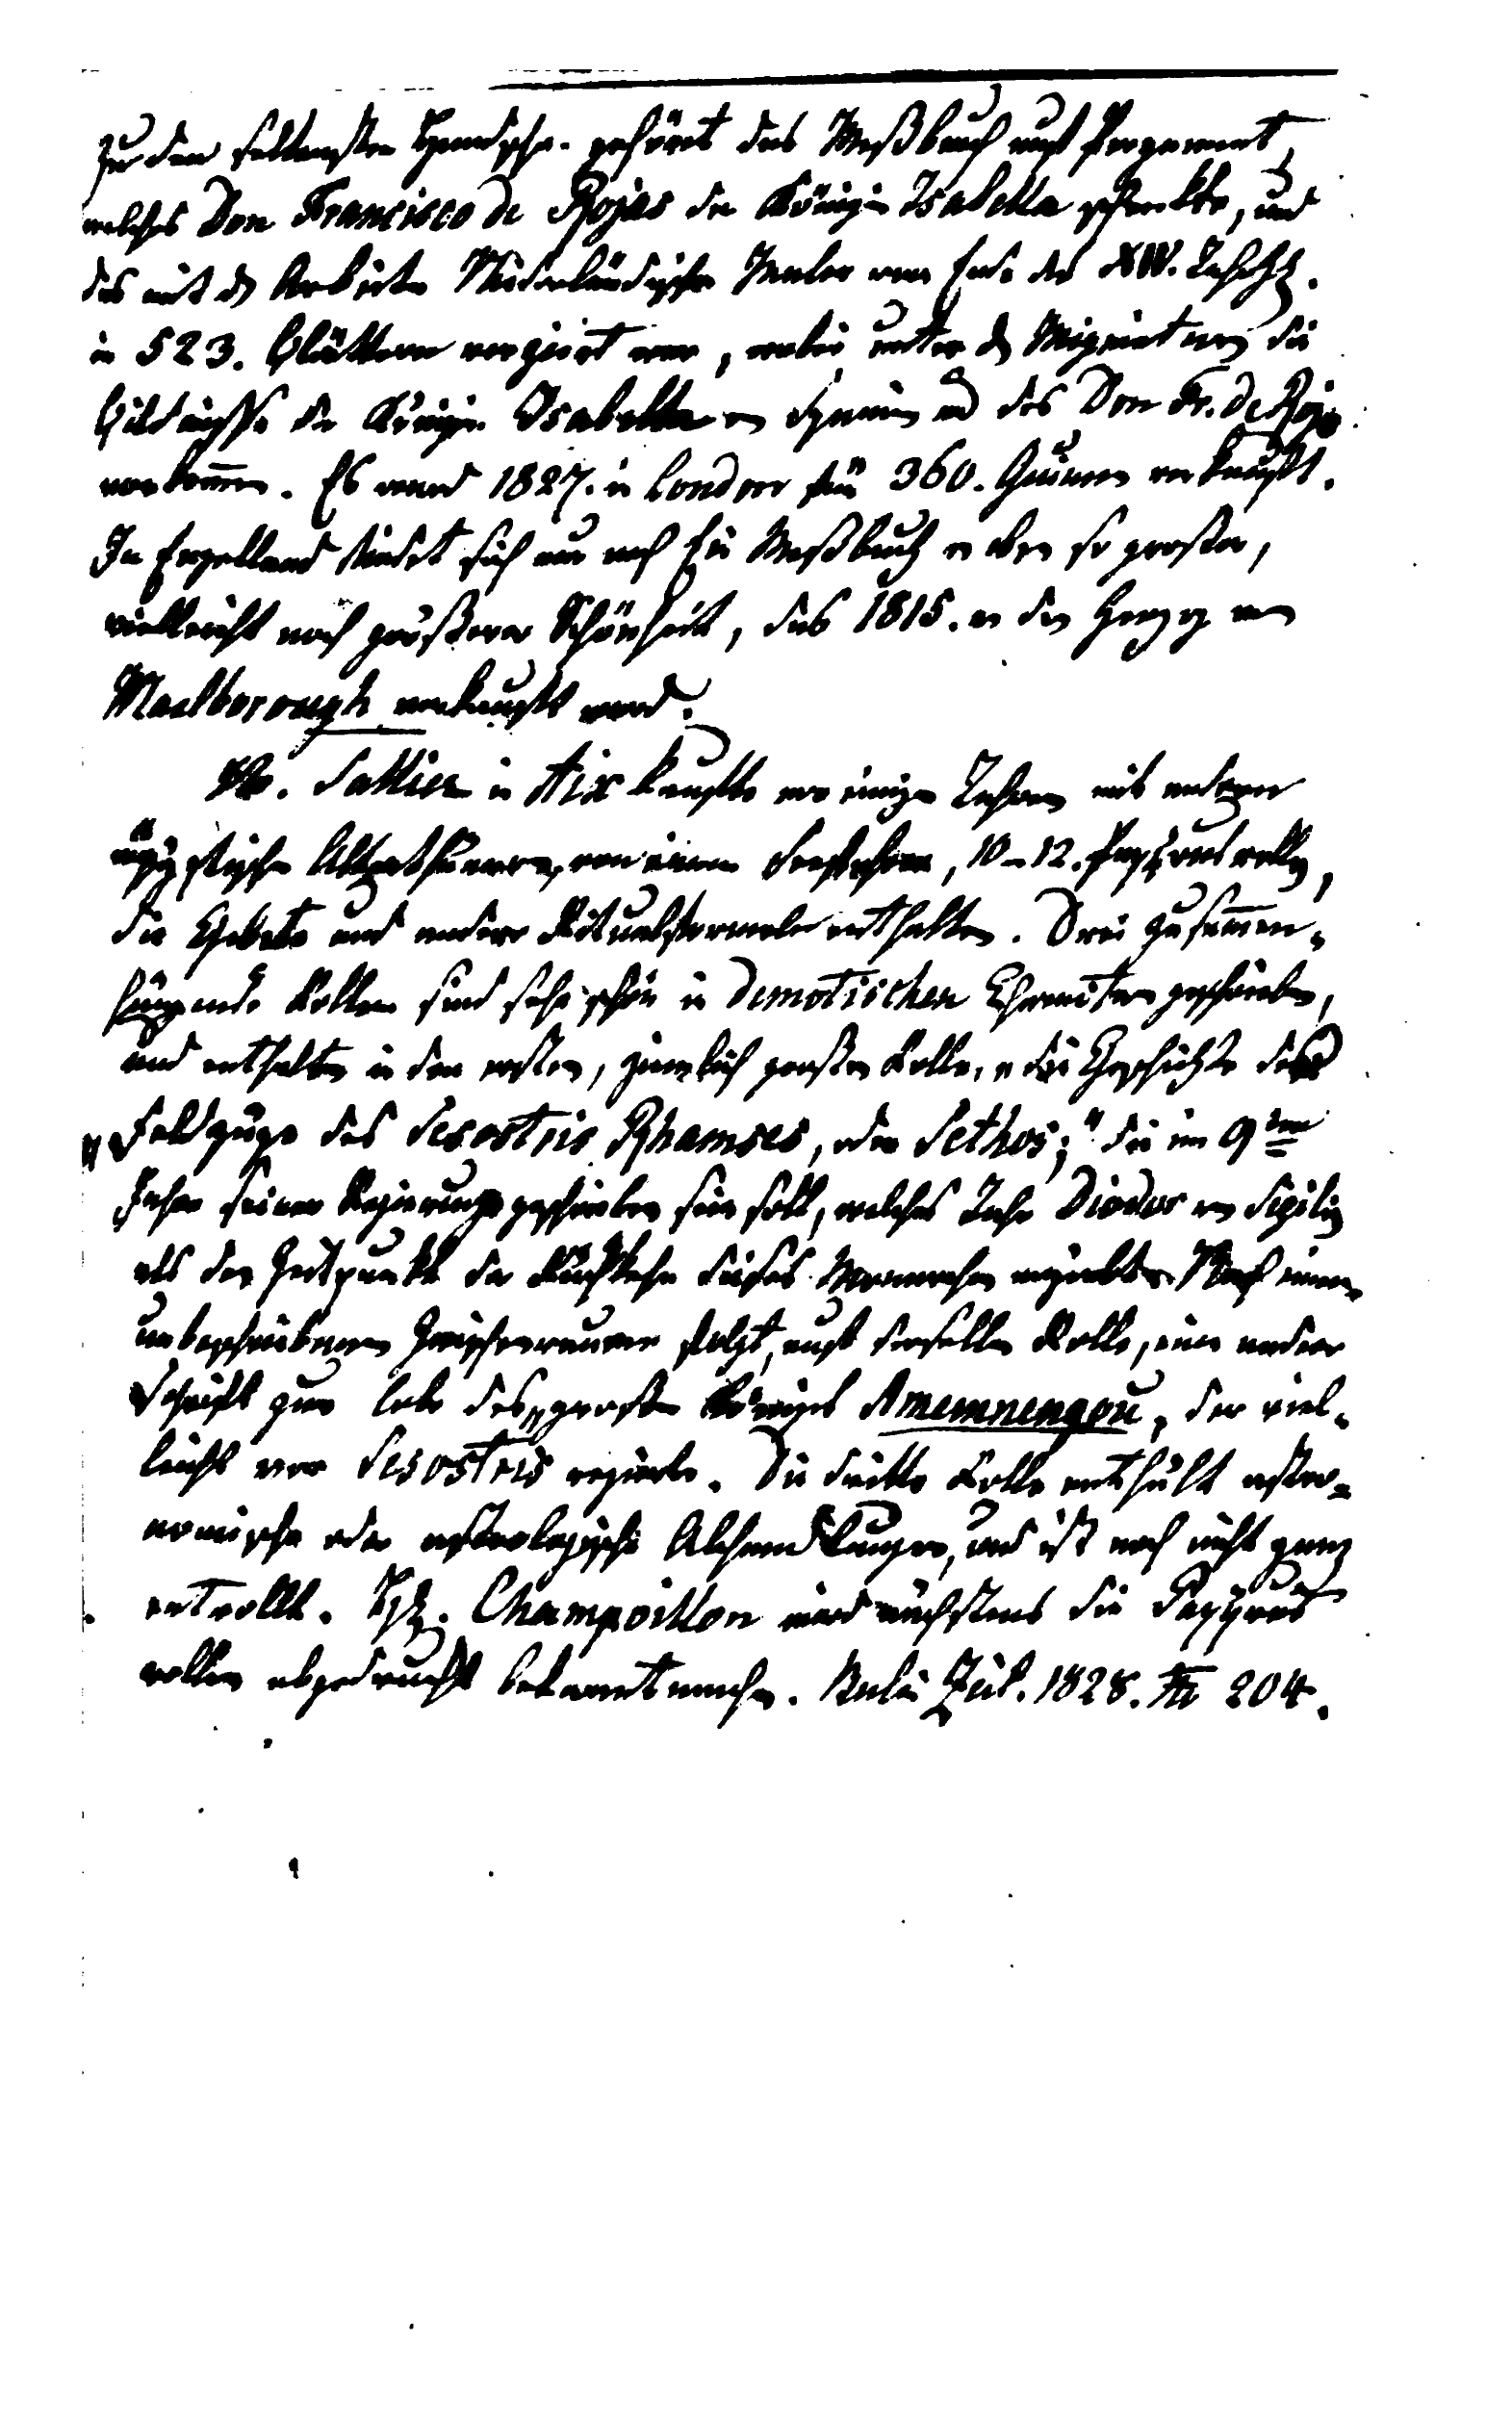 Zu den seltensten Handschr. gehört das Meßbuch auf Pergament,
welches Don Francisco de Rojas der Königin Isabella schenkte, und
das mit den Arbeiten Niederländischer Maler vom Ende des XV. Jahrhh.
in 523. Blättern verziert war, wobei unter den Miniaturen die
Bildnisse der Königin Isabella von Spanien und des Don Fr. de Roj.
vorkommen. Es ward 1827. in London für 360. Guineen verkauft.
In Engelland findet sich nur noch Ein Meßbuch von eben so großer,
vielleicht noch größerer Schönheit, das 1815. an den Herzog von
Maelborough verkauft ward.
Hr. Sallier in Aix kaufte vor einigen Jahren mit andern
ägyptischen Alterthümern, von einem Seefahrer, 10-12. Papyrusrollen,
die Gebete und andere Ritualformeln enthalten. Drei zusammen-
hängende Rollen sind sehr schön in demotischen Charakteren geschrieben,
und enthalten in der ersten, ziemlich großen Rolle, „die Geschichte der
„Feldzüge des Sesostris Rhamses, oder Sethos;“ die im 9ten
Jahre seiner Regierung geschrieben sein soll, welches Jahr Diodor von Sizilien
als den Zeitpunkt der Rückkehr dieses Monarchen angiebt. Nach einem
unbeschriebenen Zwischenraume folgt, auf derselben Rolle, eine andere
Schrift zum Lobe des „großen Königs Amemnengou, der viel-
leicht vor Sesostris regierte. Die dritte Rolle enthält astro-
nomische oder astrologische Abhandlungen, und ist noch nicht ganz
entrollt. Champoillon wird nächstens die Papyrus
rollen abgedruckt bekannt machen. Berlin Zeit. 1828. 204.